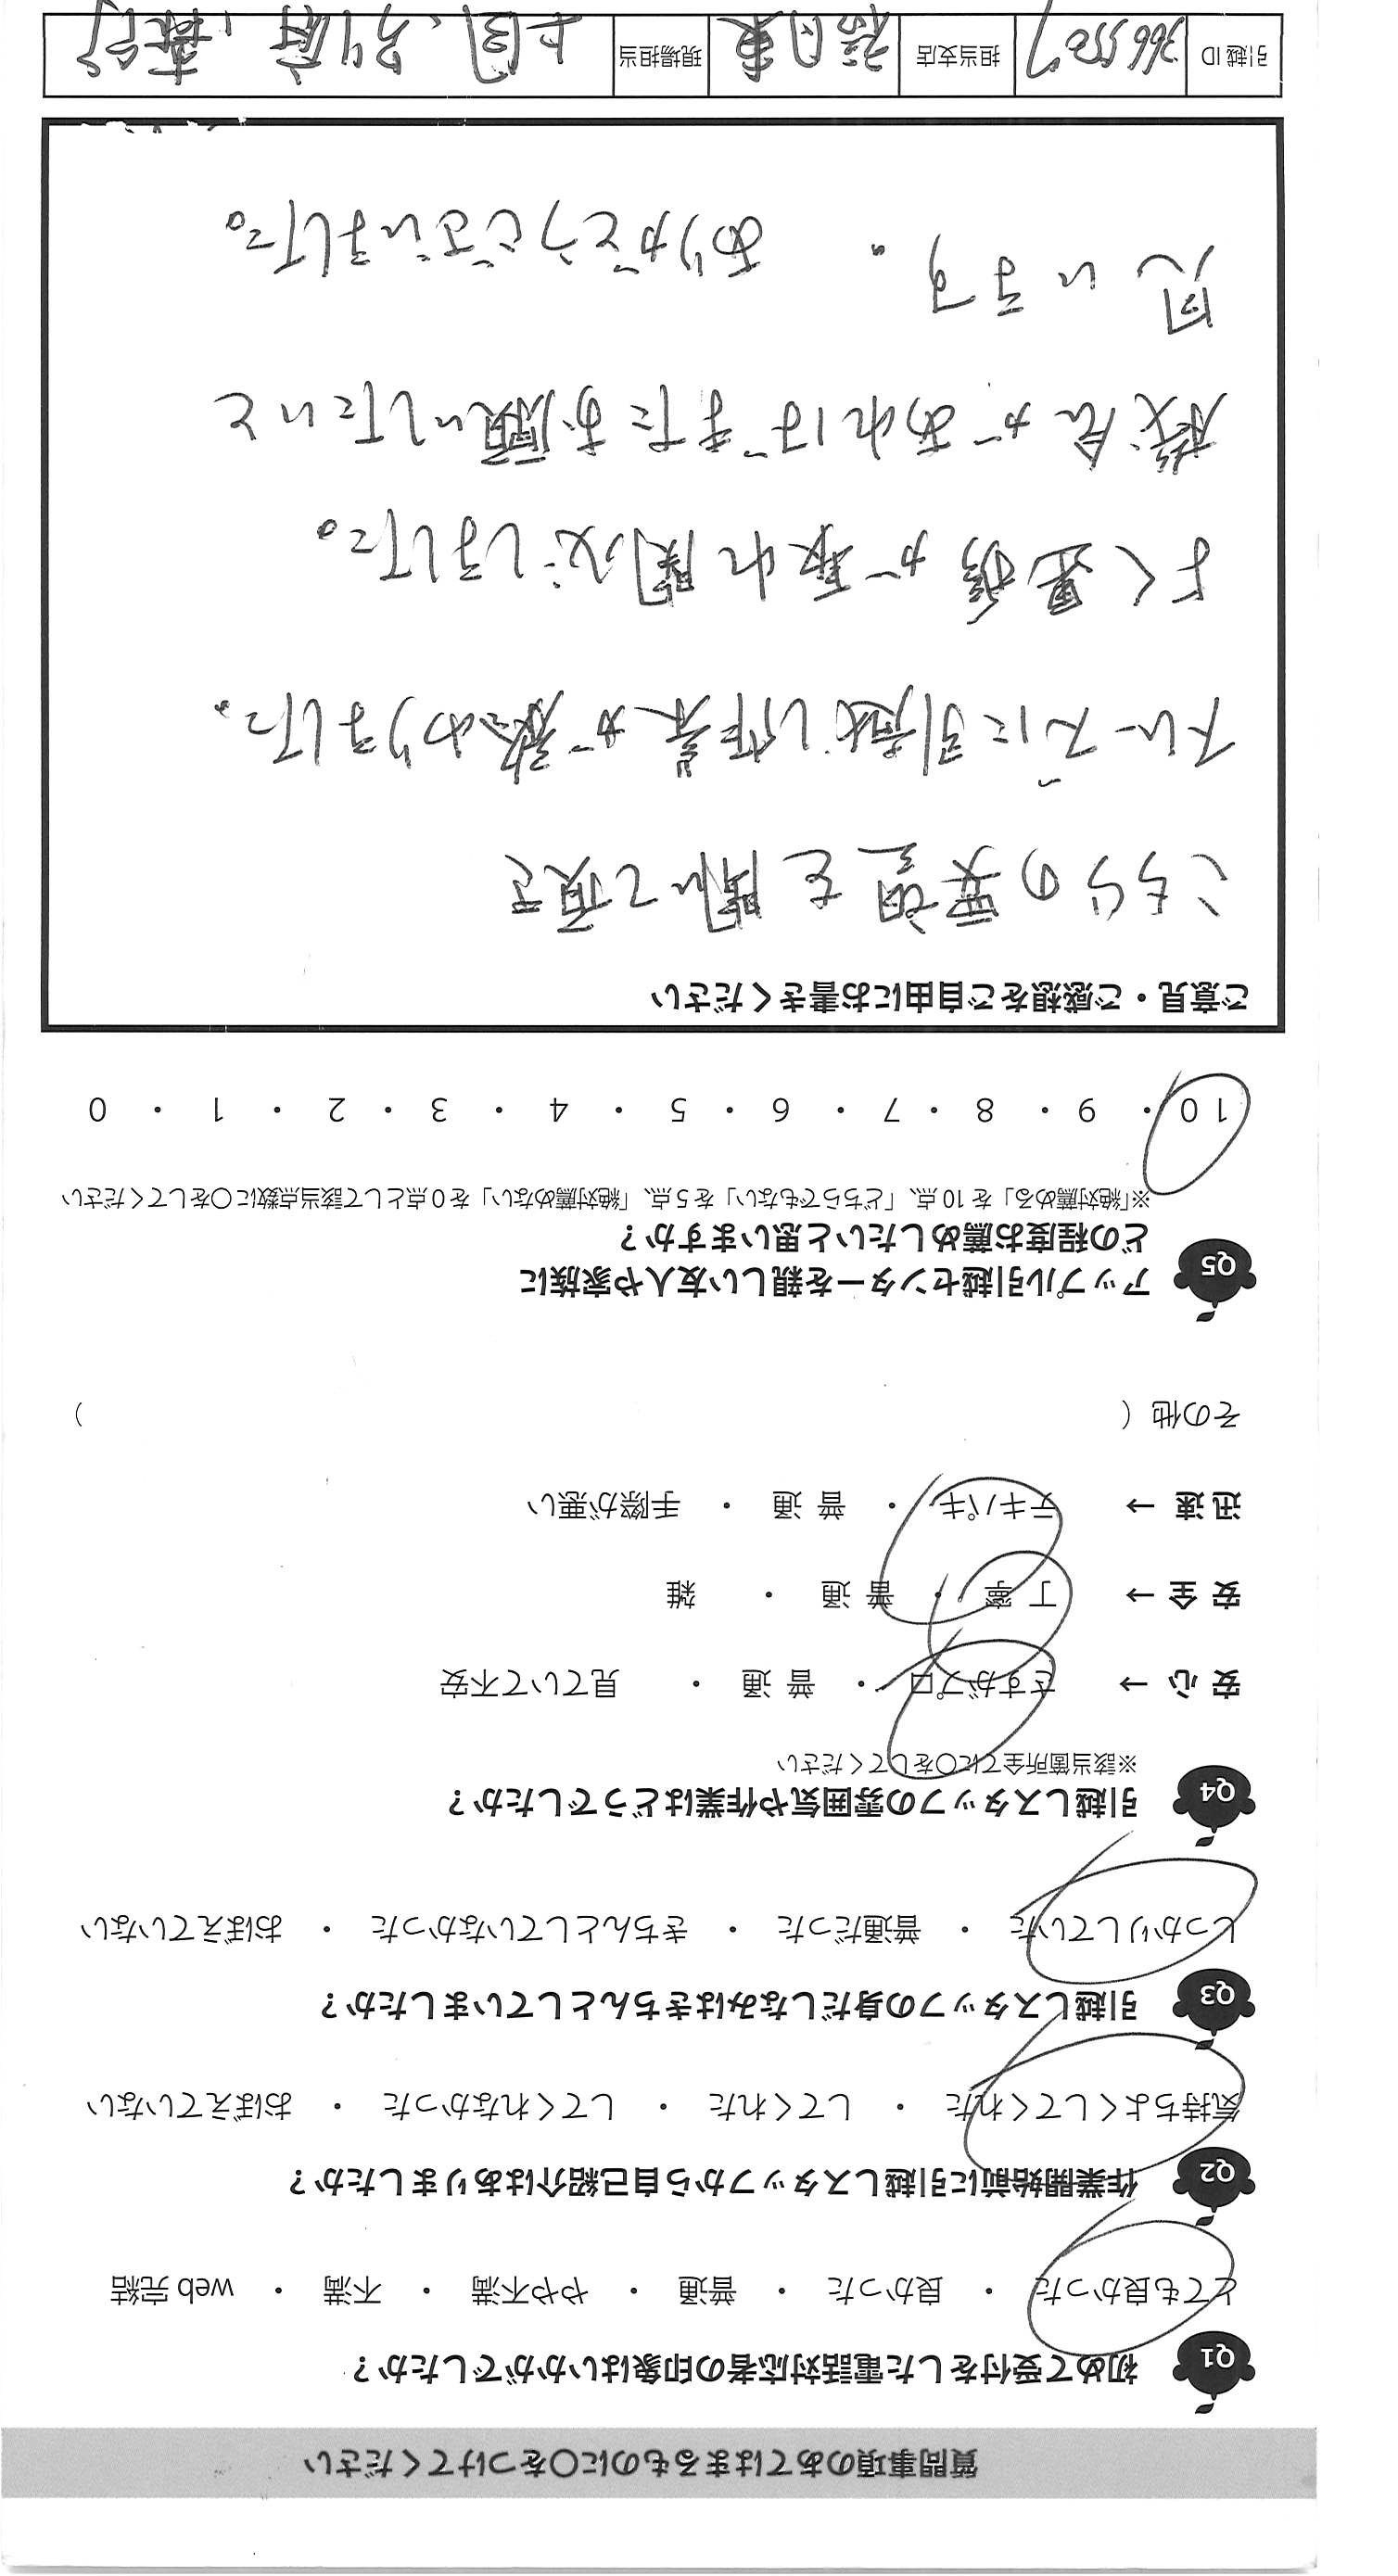 質問事項のあてはまるものに○をつけてください
Q1 初めて受付をした電話対応者の印象はいかがでしたか？
とても良かった ・ 良かった ・ 普通 ・ やや不満 ・ 不満 ・ web 完結
Q2 作業開始前に引越しスタッフから自己紹介はありましたか？
気持ちよくしてくれた ・ してくれた ・ してくれなかった ・ おぼえていない
Q3 引越しスタッフの身だしなみはきちんとしていましたか？
しっかりしていた ・ 普通だった ・ きちんとしていなかった ・ おぼえていない
Q4 引越しスタッフの雰囲気や作業はどうでしたか？
※該当箇所全てに○をしてください
安 心 → さすがプロ ・ 普 通 ・ 見ていて不安
安 全 → 丁 寧 ・ 普 通 ・ 雑
迅 速 → テキパキ ・ 普 通 ・ 手際が悪い
その他（ ）
Q5 アップル引越センターを親しい友人や家族に
どの程度お薦めしたいと思いますか？
※「絶対薦める」を 10 点、「どちらでもない」を 5 点、「絶対薦めない」を 0 点として該当点数に○をしてください
10 ・ 9 ・ 8 ・ 7 ・ 6 ・ 5 ・ 4 ・ 3 ・ 2 ・ 1 ・ 0
ご意見・ご感想をご自由にお書きください
こちらの要望を聞いて頂き
スムーズに引越し作業が終わりました。
よく連携が取れ関心しました。
機会があればまたお願いしたいと
思います。 ありがとうございました。
引越 ID 3665507 担当支店 現場担当